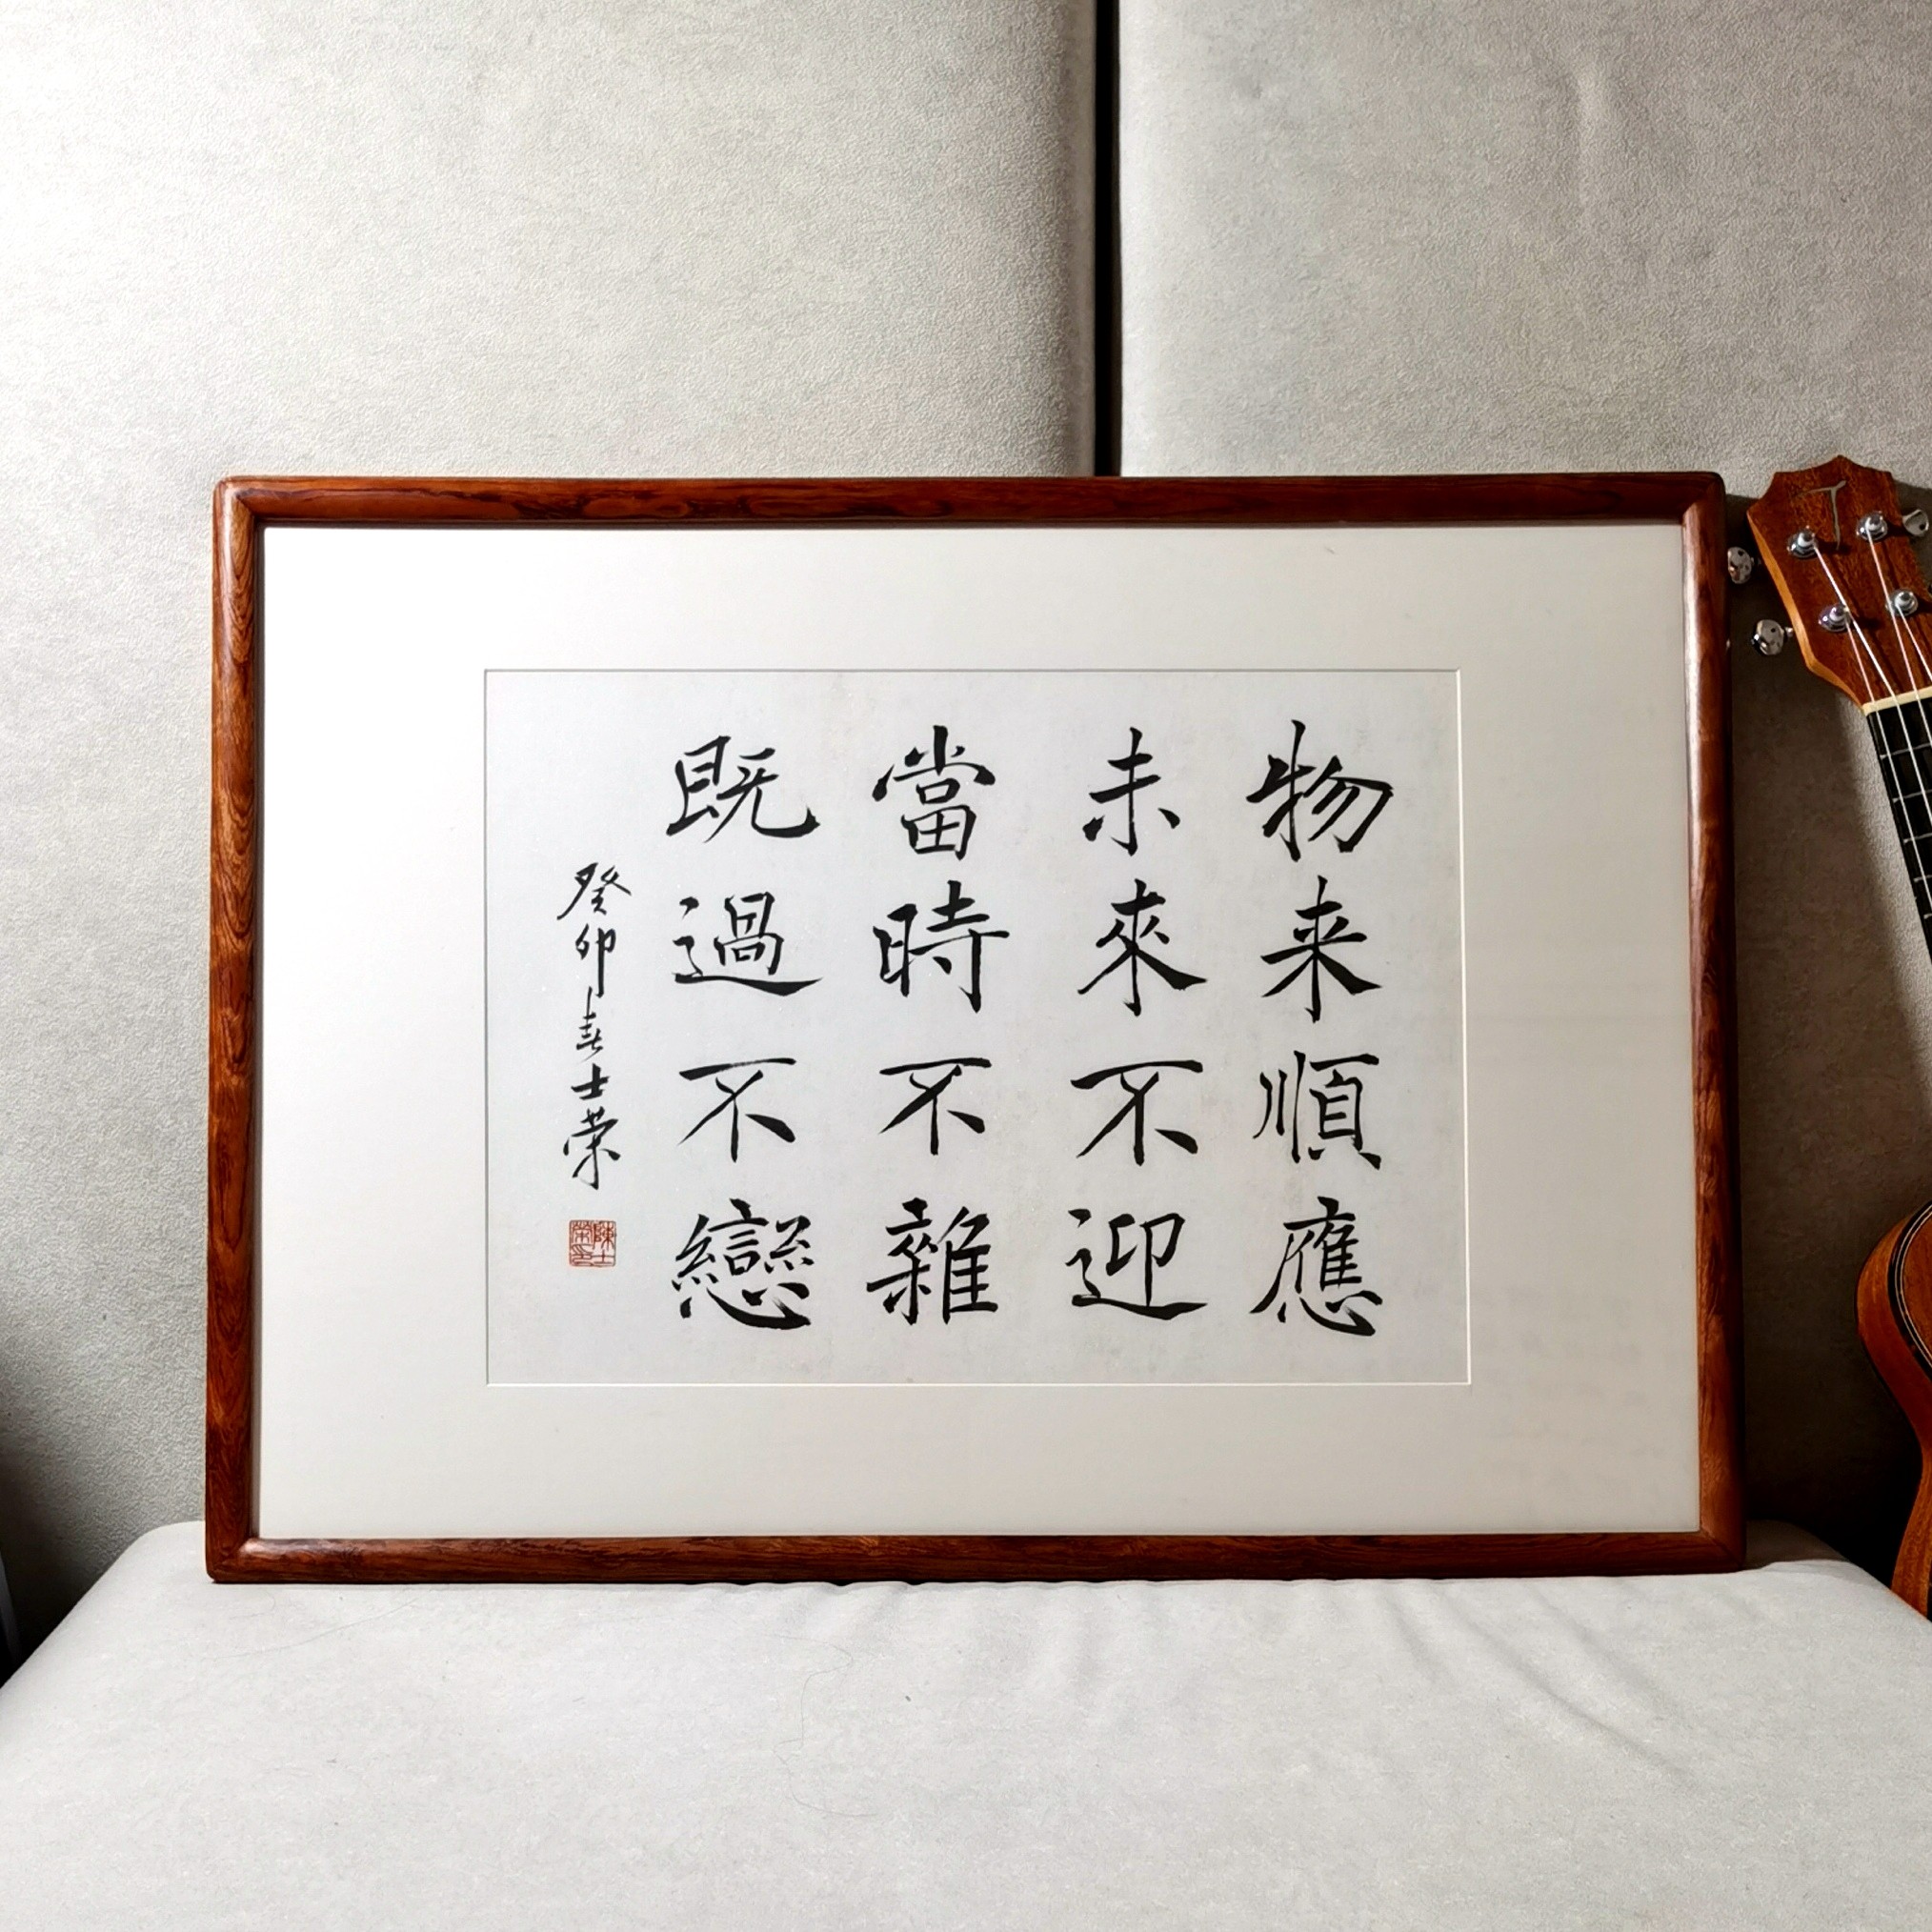 物来順應
未來不迎
當時不雜
既過不戀
癸卯春士荣
陳士榮印